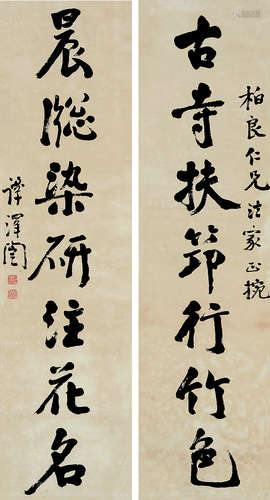 柏良仁兄法家正捥
古寺扶筇行竹色
晨牕染研注花名
譚澤闓